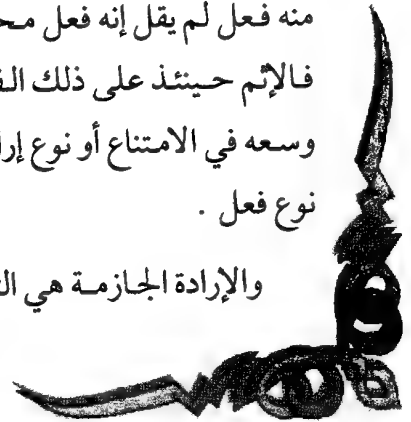 منه فعل لم يقل إنه فعل
فالإثم حينئذ على ذلك
وسعه في الامتناع أو نوع
نوع فعل .
والإرادة الجازمة هي